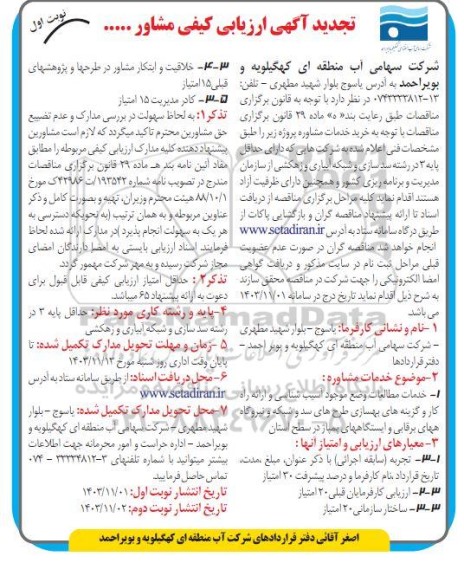 تجدید آگهی ارزیابی کیفی مشاور .....
نوبت اول
شرکت سهامی آب منطقه ای کهگیلویه و
بویراحمد به آدرس یاسوج بلوار شهید مطهری - تلفن:
۱۳-۰۷۴۳۳۳۳۴۸۱۲ در نظر دارد با توجه به قانون برگزاری
مناقصات طبق رعایت بند «ه» ماده ۲۹ قانون برگزاری
مناقصات با توجه به خرید خدمات مشاوره پروژه زیر را طبق
مشخصات فنی اعلام شده به شرکت هایی که دارای حداقل
پایه ۳ در رشته سد سازی و شبکه آبیاری و زهکشی از سازمان
مدیریت و برنامه ریزی کشور و همچنین دارای ظرفیت آزاد
هستند اقدام نماید کلیه مراحل برگزاری مناقصه از دریافت
اسناد تا ارائه پیشنهاد مناقصه گران و بازگشایی پاکات از
طریق درگاه سامانه ستاد به آدرس www.setadiran.ir
انجام خواهد شد. مناقصه گران در صورت عدم عضویت
قبلی مراحل ثبت نام در سایت مذکور و دریافت گواهی
امضا الکترونیکی را جهت شرکت در مناقصه محقق سازند
به شرح ذیل اقدام نماید تاریخ درج در سامانه ۱۴۰۳/۱۱/۰۱
می باشد
۱-نام و نشانی کارفرما: یاسوج - بلوار شهید مطهری
- شرکت سهامی آب منطقه ای کهگیلویه و بویر احمد -
دفتر قراردادها
۲-موضوع خدمات مشاوره:
۱- خدمات مطالعات وضع موجود آسیب شناسی و ارائه راه
کار و گزینه های بهسازی طرح های سد و شبکه و نیروگاه
ههای برقابی و ایستگاههای پمپاژ در سطح استان
۳-معیارهای ارزیابی و امتیاز آنها:
۳-۱- تجربه (سابقه اجرائی) با ذکر عنوان، مبلغ، مدت،
تاریخ قرارداد، نام کارفرما و درصد پیشرفت ۳۰ امتیاز
۳-۲- ارزیابی کارفرمایان قبلی ۲۰ امتیاز
۳-۳- ساختار سازمانی ۲۰ امتیاز
۳-۴- خلاقیت و ابتکار مشاور در طرحها و پژوهشهای
قبلی ۱۵ امتیاز
۳-۵- کادر مدیریت ۱۵ امتیاز
تذکر۱: به لحاظ سهولت در بررسی مدارک و عدم تضییع
حق مشاورین محترم تاکید میگردد که لازم است مشاورین
پیشنهاد دهنده کلیه مدارک ارزیابی کیفی مربوطه را مطابق
مفاد آئین نامه بند هـ ماده ۲۹ قانون برگزاری مناقصات
مندرج در تصویب نامه شماره ۱۹۳۵۴۲/ت ۴۲۹۸۶ک مورخ
۸۸/۱۰/۱ هیئت محترم وزیران، تهیه و بصورت کامل و ذکر
عناوین مربوطه و به همان ترتیب (به نحویکه دسترسی به
هر یک به سهولت انجام پذیرد) در مدارک ارائه شده لحاظ
فرمایند اسناد ارزیابی بایستی به امضا دارندگان امضای
مجاز شرکت رسیده و به مهر شرکت ممهور گردد.
تذکر۲: حداقل امتیاز ارزیابی کیفی قابل قبول برای
دعوت به ارائه پیشنهاد ۶۵ میباشد.
۴-پایه و رشته کاری مورد نظر: حداقل پایه ۳ در
رشته سد سازی و شبکه آبیاری و زهکشی
۵-زمان و مهلت تحویل مدارک تکمیل شده: تا
پایان وقت اداری روز شنبه مورخ ۱۴۰۳/۱۱/۱۳
۶-محل دریافت اسناد: از طریق سامانه ستاد به آدرس
www.setadiran.ir
۷-محل تحویل مدارک تکمیل شده: یاسوج - بلوار
شهید مطهری - شرکت سهامی آب منطقه ای کهگیلویه و
بویراحمد - اداره حراست و امور محرمانه جهت اطلاعات
بیشتر میتوانید با شماره تلفنهای ۳-۳۳۳۳۴۸۱۲ - ۰۷۴
تماس حاصل فرمایید
تاریخ انتشار نوبت اول: ۱۴۰۳/۱۱/۰۱
تاریخ انتشار نوبت دوم: ۱۴۰۳/۱۱/۰۲
اصغر آقائی دفتر قراردادهای شرکت آب منطقه ای کهگیلویه و بویراحمد